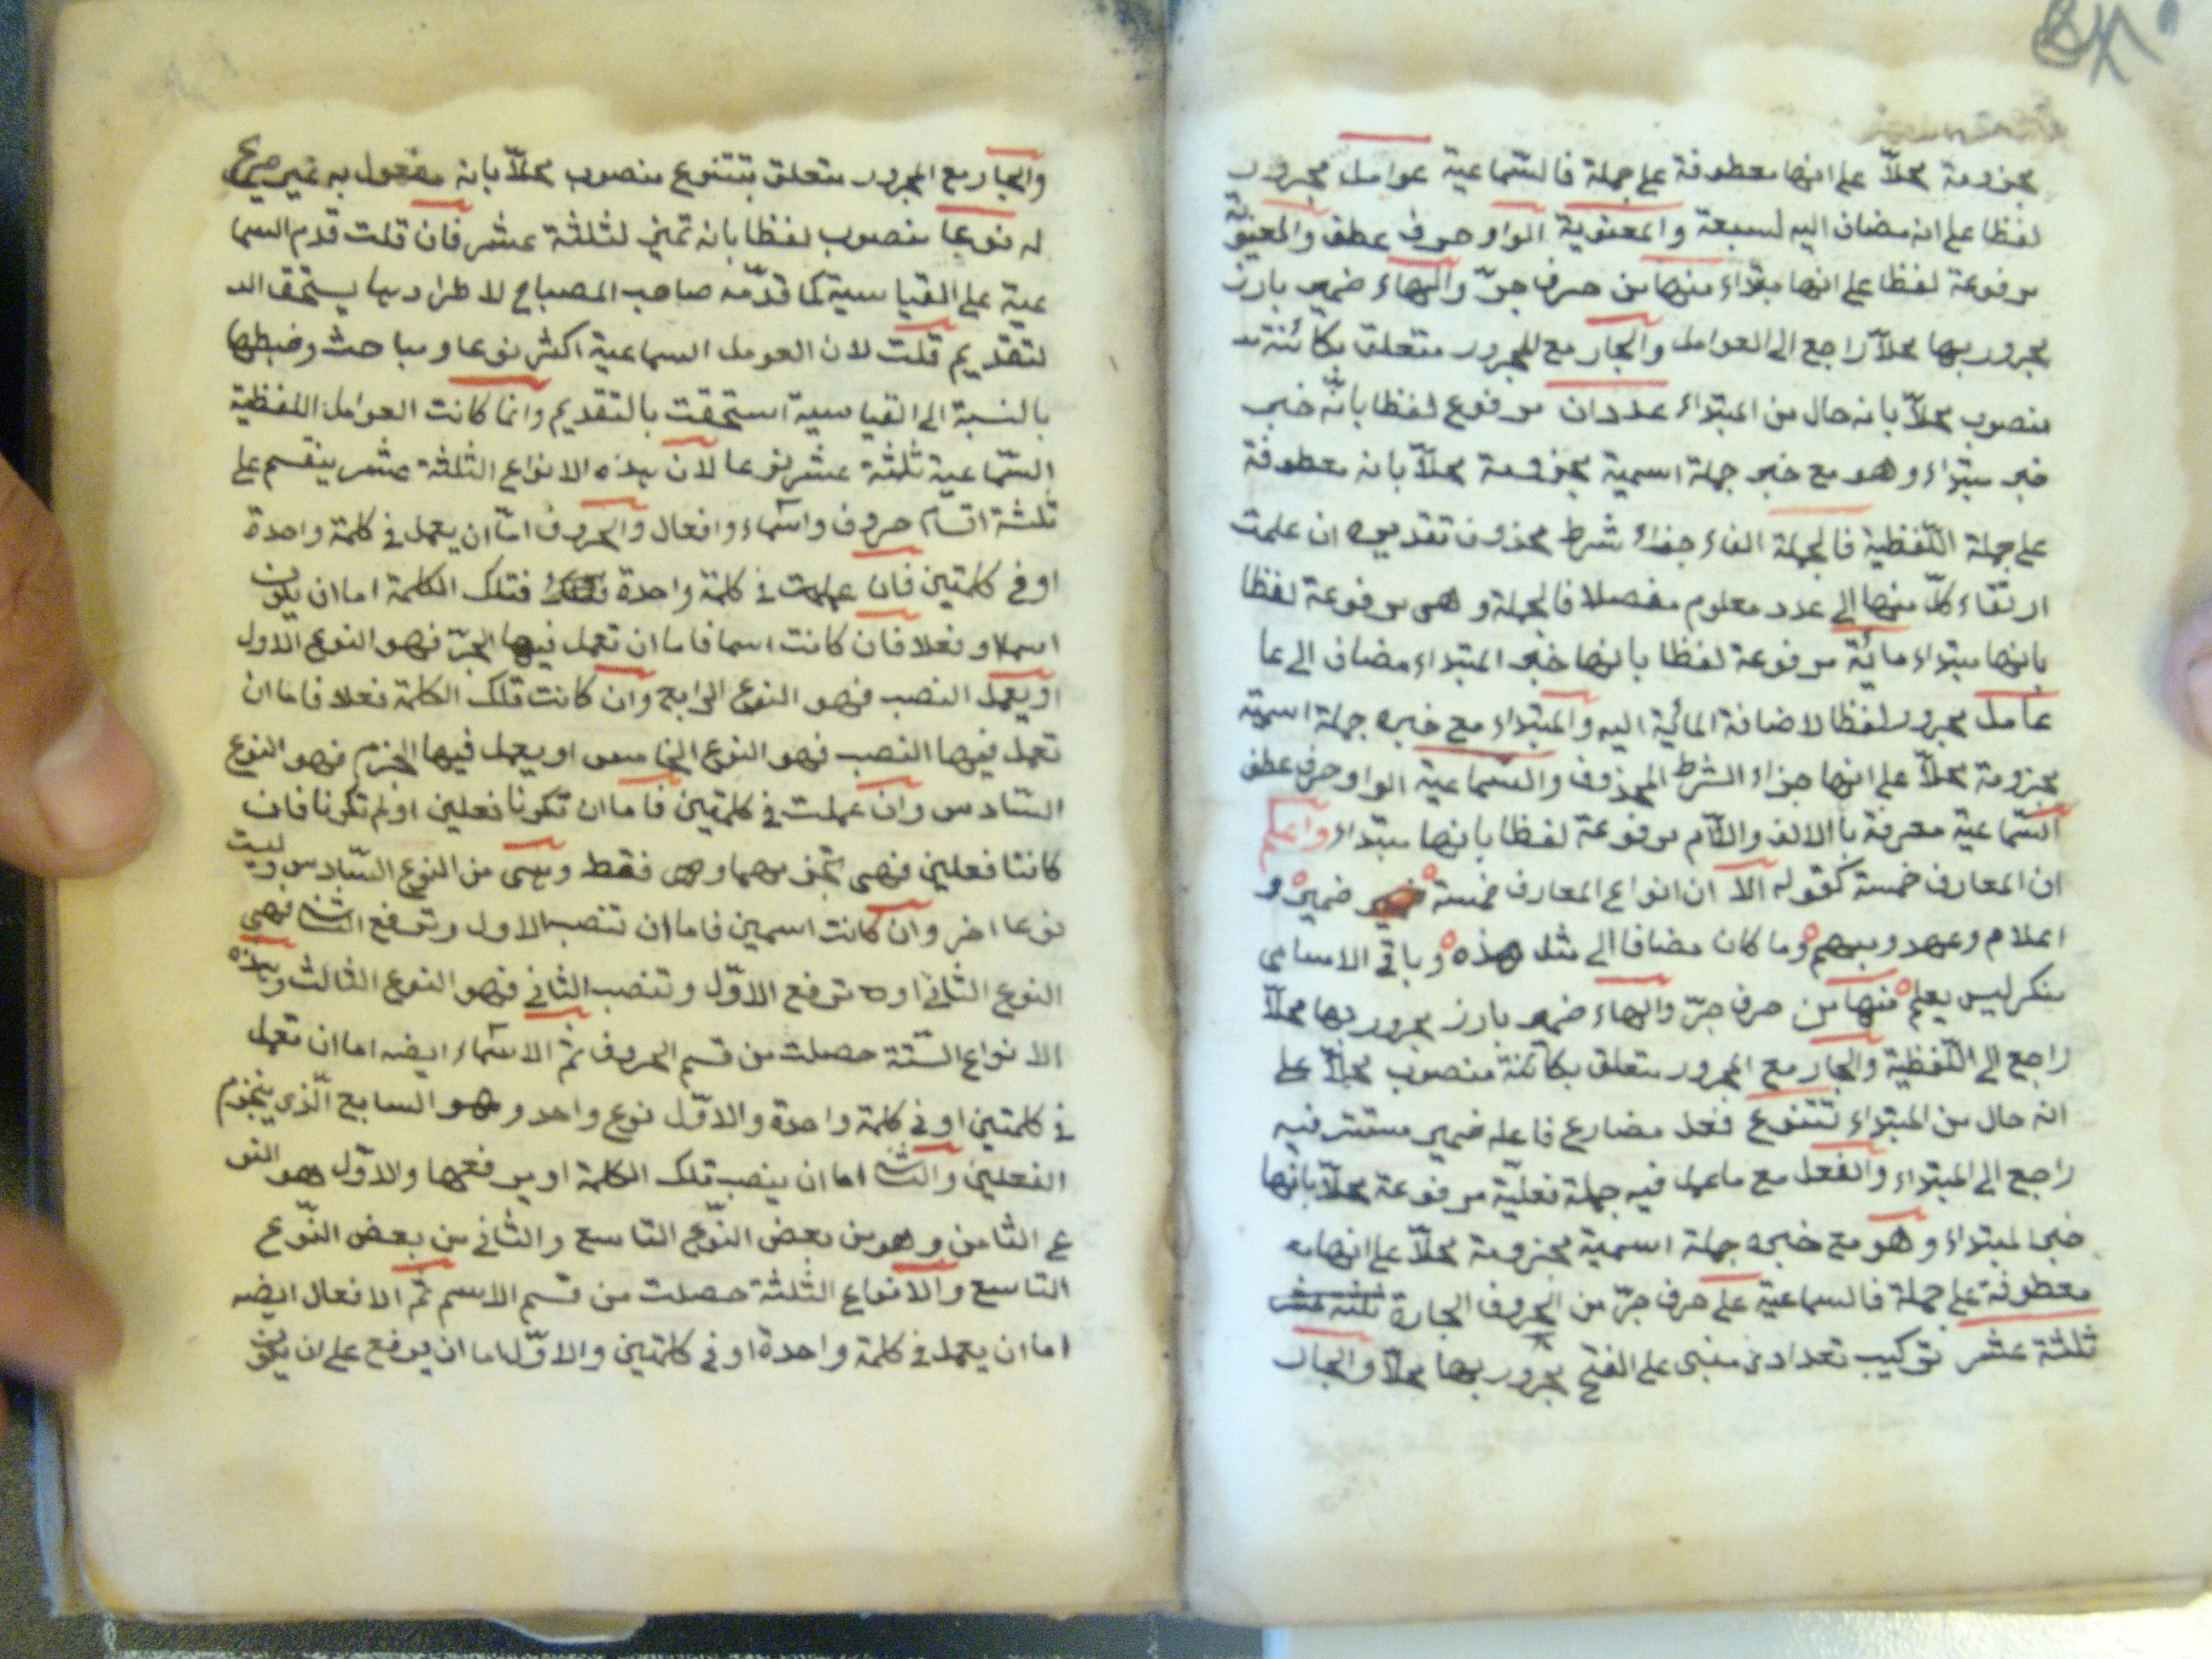 مجزومة محلاّ على انها معطوفة على جملة فالسّماعية عوامل مجرور
لفظا على انه مضاف اليه لسبعة والمعنوية الواو حرف عطف والمعنوية
مرفوعة لفظا على انها مبتداء منها من حرف جرّ والهاء ضمير بارز
مجرور بها محلاّ راجع الى العوامل والجار مع المجرور متعلق بكائنة
منصوب محلاّ بانه حال من المبتداء عددان مرفوع لفظا بانّه خبر
خبر مبتداء وهو مع خبره جملة اسمية مجزومة محلاّ بانه معطوفة
على جملة اللّفظية فالجملة الفاء جزاء شرط محذوف تقديره ان علمت
ارتقاء كلّ منها الى عدد معلوم مفصلا فالجملة وهى مرفوعة لفظا
بانها مبتداء مائة مرفوعة لفظا بانها خبر المبتداء مضاف الى عا
عامل مجرور لفظا لاضافة المائة اليه والمبتداء مع خبره جملة اسمية
مجزومة محلاّ على انها جزاء الشرط المحذوف والسّماعية الواو حرف عطف
السّماعية معرفة بالالف واللّام مرفوعة لفظا بانها مبتداء واعلم
ان المعارف خمسة كقوله الا ان انواع المعارف خمسة ضمير و
اعلام وعهد ومبهم وما كان مضافا الى مثل هذه وباقى الاسامى
منكر ليس يعلم منها من حرف جرّ والهاء ضمير بارز مجرور بها محلاّ
راجع الى اللّفظية والجار مع المجرور متعلق بكائنة منصوب محلاّ على
انه حال من المبتداء تتنوع فعل مضارع فاعله ضمير مستتر فيه
راجع الى المبتداء والفعل مع ما عمل فيه جملة فعليّة مرفوعة محلاّ بانها
خبر المبتداء وهو مع خبره جملة اسمية مجزومة محلاّ على انها مع
معطوفة على جملة فالسماعية على حرف جرّ من الحروف الجارة ثلثة عشر
ثلثة عشر تركيب تعدادى مبنى على الفتح مجرور بها محلاّ والجار
والجار مع المجرور متعلق بتتنوع منصوب محلاّ بانه مفعول به غير صريح
له نوعا منصوب لفظا بانه تميز لثلثة عشر فان قلت قدم السما
عية على القياسية كما قدّمه صاحب المصباح لاطرادها يستحق الت
لتقديم قلت لان العومل السماعية اكثر نوعا ومباحث وضبطها
بالنسبة الى القياسية استحقت بالتقديم وانما كانت العوامل اللفظية
السّماعية ثلثة عشر نوعا لان هذه الانواع الثلثة عشر ينقسم على
ثلثة اقسام حروف واسماء وافعال والحروف امّا ان يعمل فى كلمة واحدة
او فى كلمتين فان عملت فى كلمة واحدة فتلك الكلمة اما ان يكون
اسما او فعلا فان كانت اسما فاما ان تعمل فيها الجرّ فهو النوع الاول
او يعمل النصب فهو النوع الرابع وان كانت تلك الكلمة فعلا فاما ان
تعمل فيها النصب فهو النوع الخامس او يعمل فيها الجزم فهو النوع
السّادس وان عملت فى كلمتين فاما ان تكونا فعلين او لم تكونا فان
كانتا فعلين فهى تجزمهما وهى فقط وهى من النوع السّادس وليست
نوعا اخر وان كانت اسمين فاما ان تنصب الاول وترفع الثانى فهى
النوع الثّانى او ترفع الاوّل وتنصب الثانى فهو النوع الثالث وهذه
الانواع السّتة حصلت من قسم الحروف ثم الاسماء ايضه اما ان تعمل
فى كلمتين او فى كلمة واحدة والاوّل نوع واحد وهو السابع الّذى ينجزم
الفعلين والثانى اما ان ينصب تلك الكلمة او يرفعها والاوّل هو النو
ع الثامن وهو من بعض النّوع التاسع والثانى من بعض النّوع
التاسع والانواع الثّلثة حصلت من قسم الاسم ثم الافعال ايضه
اما ان يعمل فى كلمة واحدة او فى كلمتين والاوّل اما ان يرفع على ان يكون